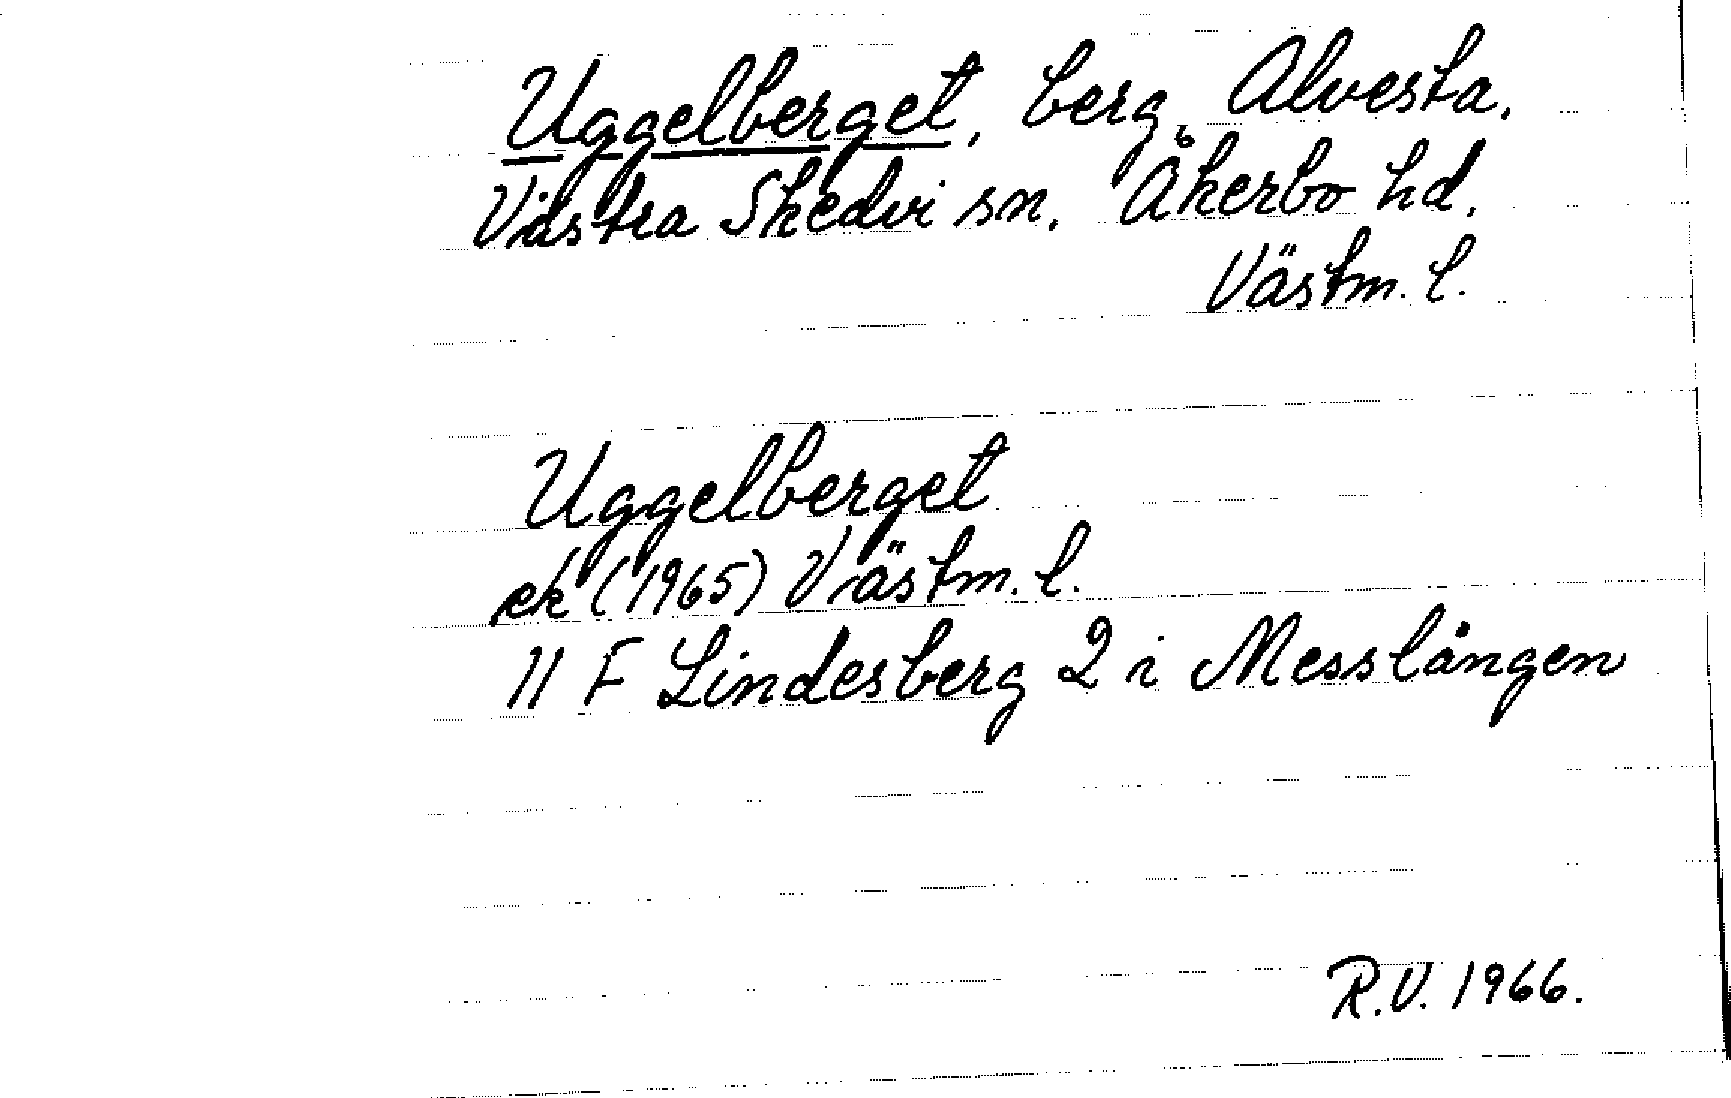 Uggelberget, berg, Alvesta,
Västra Skedvi sn. Åkerbo hd.
Västm. l.
Uggelberget
ek (1965) Västm. l.
11 F Lindesberg 2 i Messlången
R.V. 1966.